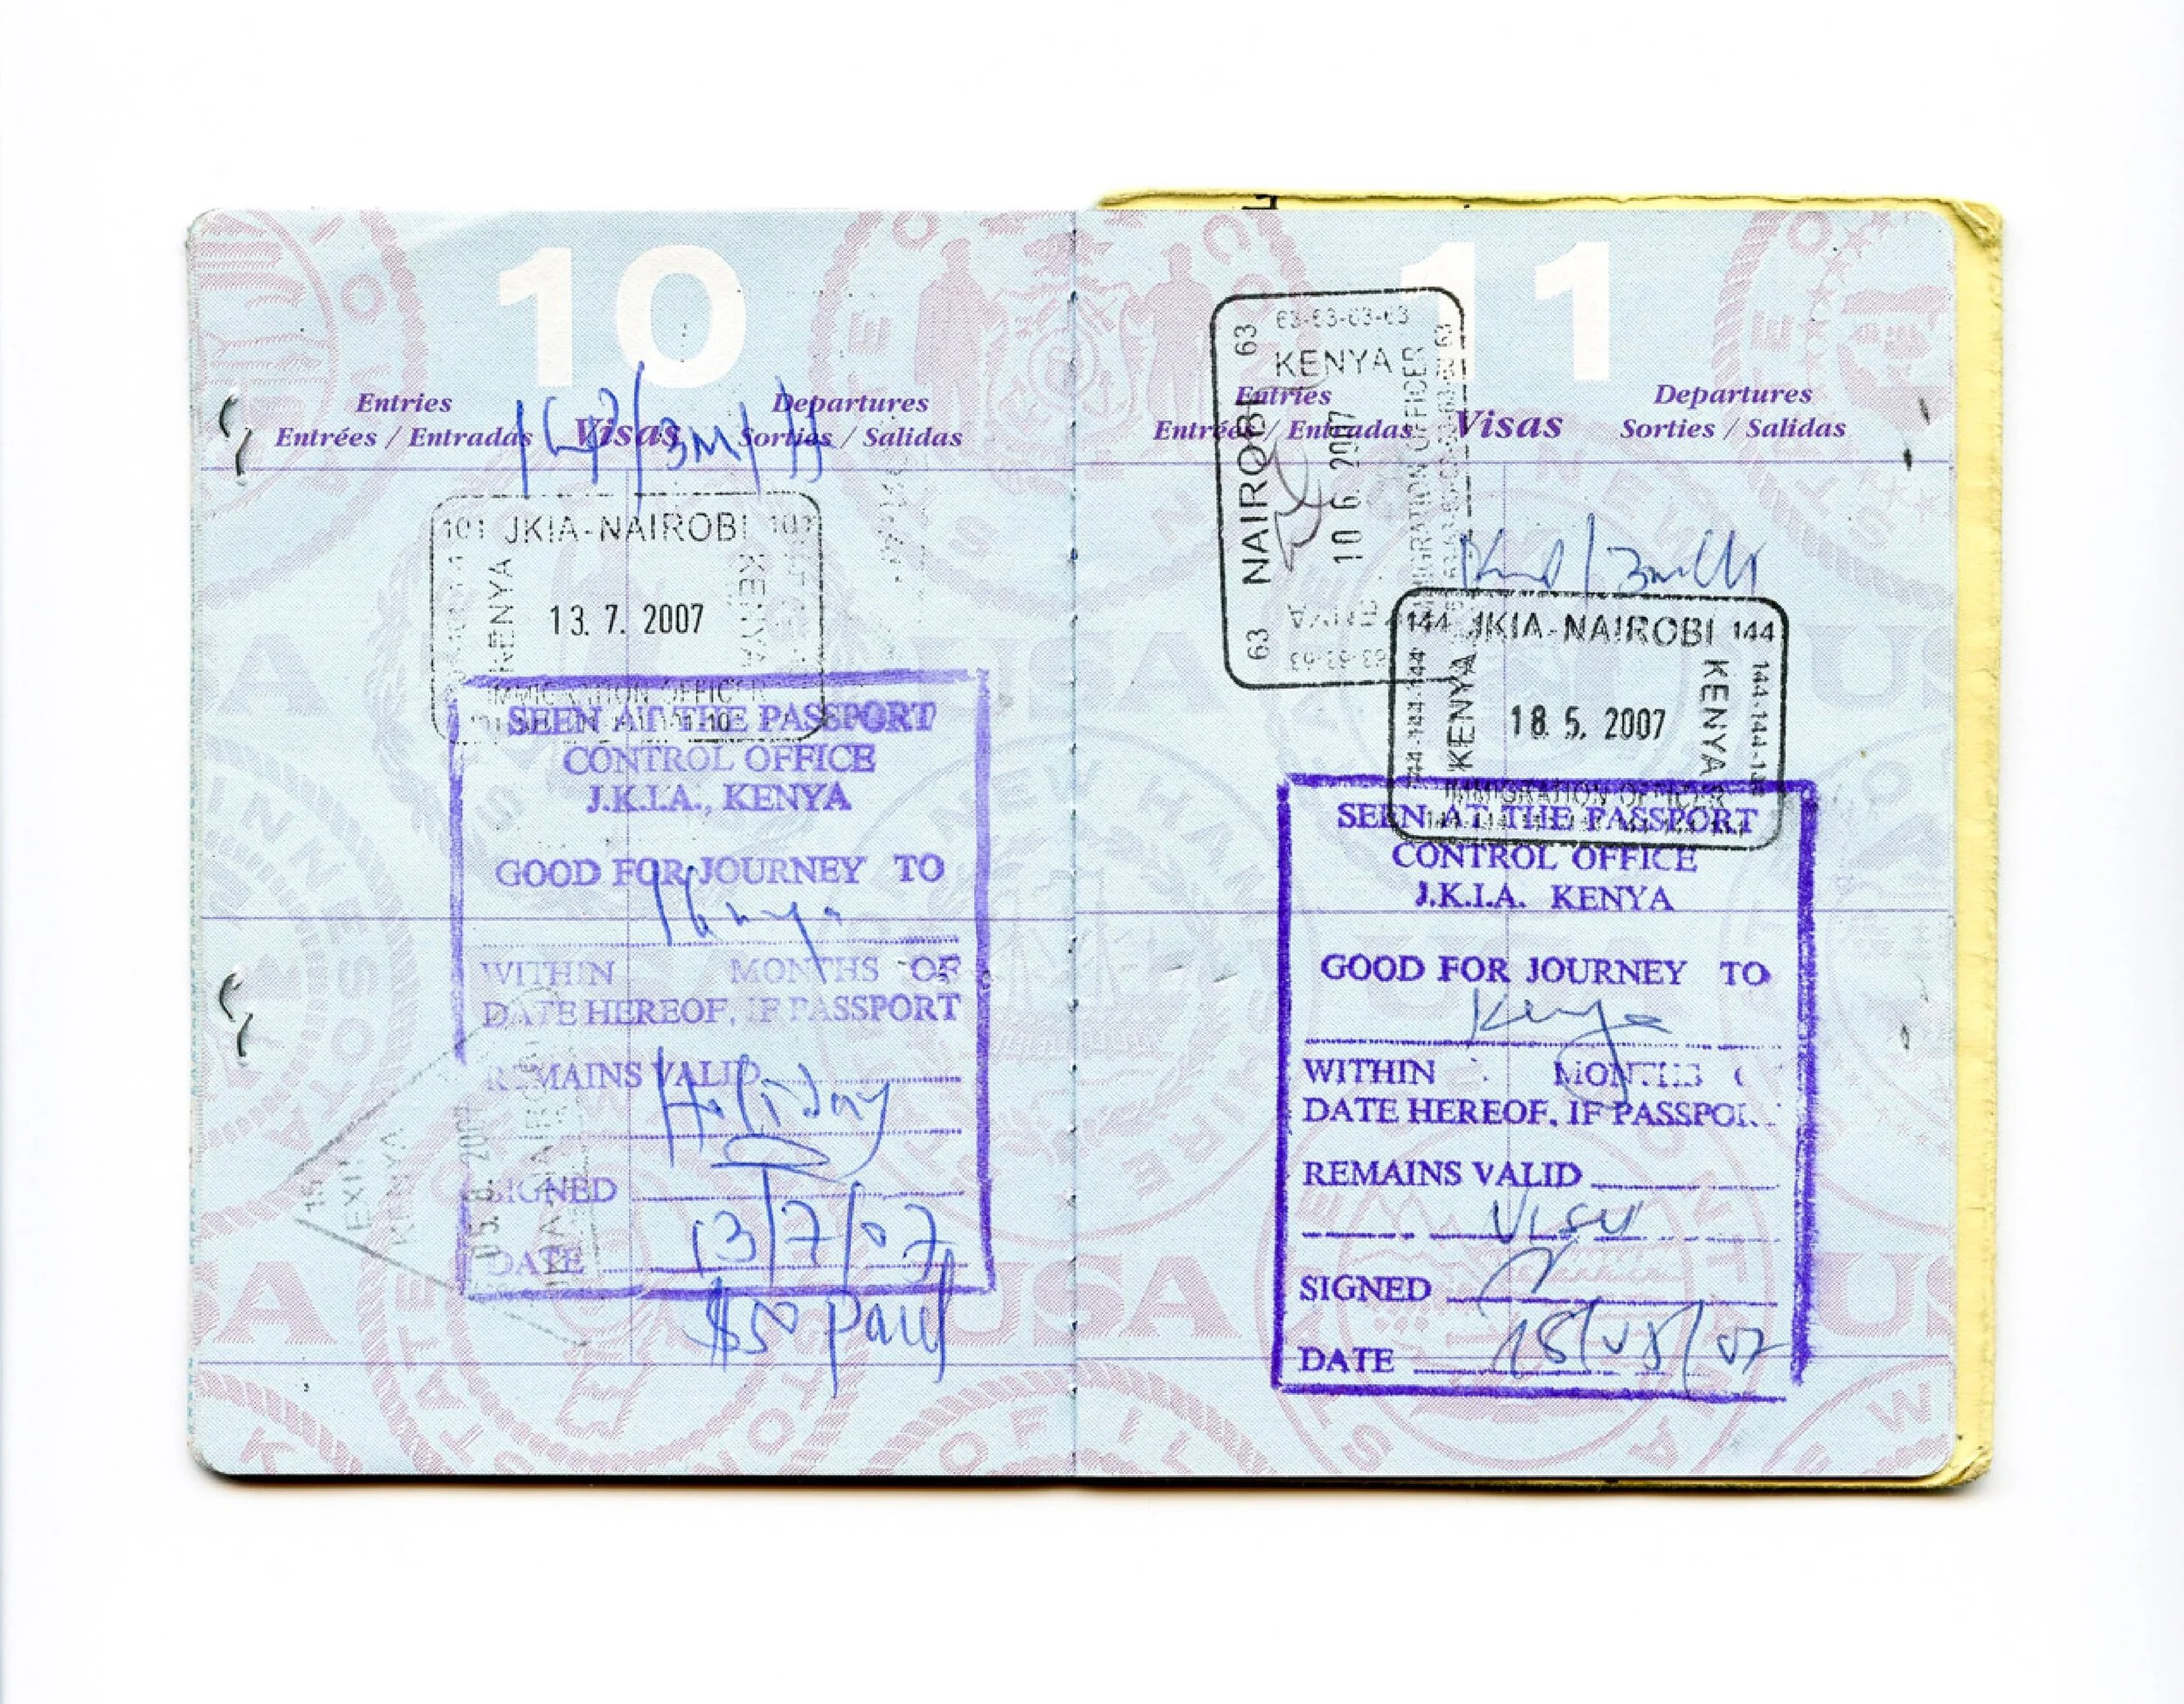 10
Entries
Entrées / Entradas
Visas
Departures
Sorties / Salidas
101 JKIA-NAIROBI 101
KENYA
KENYA
13. 7. 2007
IMMIGRATION OFFICER
SEEN AT THE PASSPORT
CONTROL OFFICE
J.K.I.A., KENYA
GOOD FOR JOURNEY TO
Kenya
WITHIN MONTHS OF
DATE HEREOF, IF PASSPORT
REMAINS VALID
Holiday
SIGNED
DATE 13/7/07
$50 paid
15
EXIT
KENYA
JKIA NAIROBI
USA
11
Entries
Entrées / Entradas
Visas
Departures
Sorties / Salidas
63-63-63-63
KENYA
63 NAIROBI 63
10 6 2007
IMMIGRATION OFFICER
KENYA
63-63-63
144 JKIA-NAIROBI 144
144-144-144
KENYA
18. 5. 2007
KENYA
IMMIGRATION OFFICER
SEEN AT THE PASSPORT
CONTROL OFFICE
J.K.I.A. KENYA
GOOD FOR JOURNEY TO
Kenya
WITHIN MONTHS
DATE HEREOF, IF PASSPO
REMAINS VALID
Visit
SIGNED
DATE 18/05/07